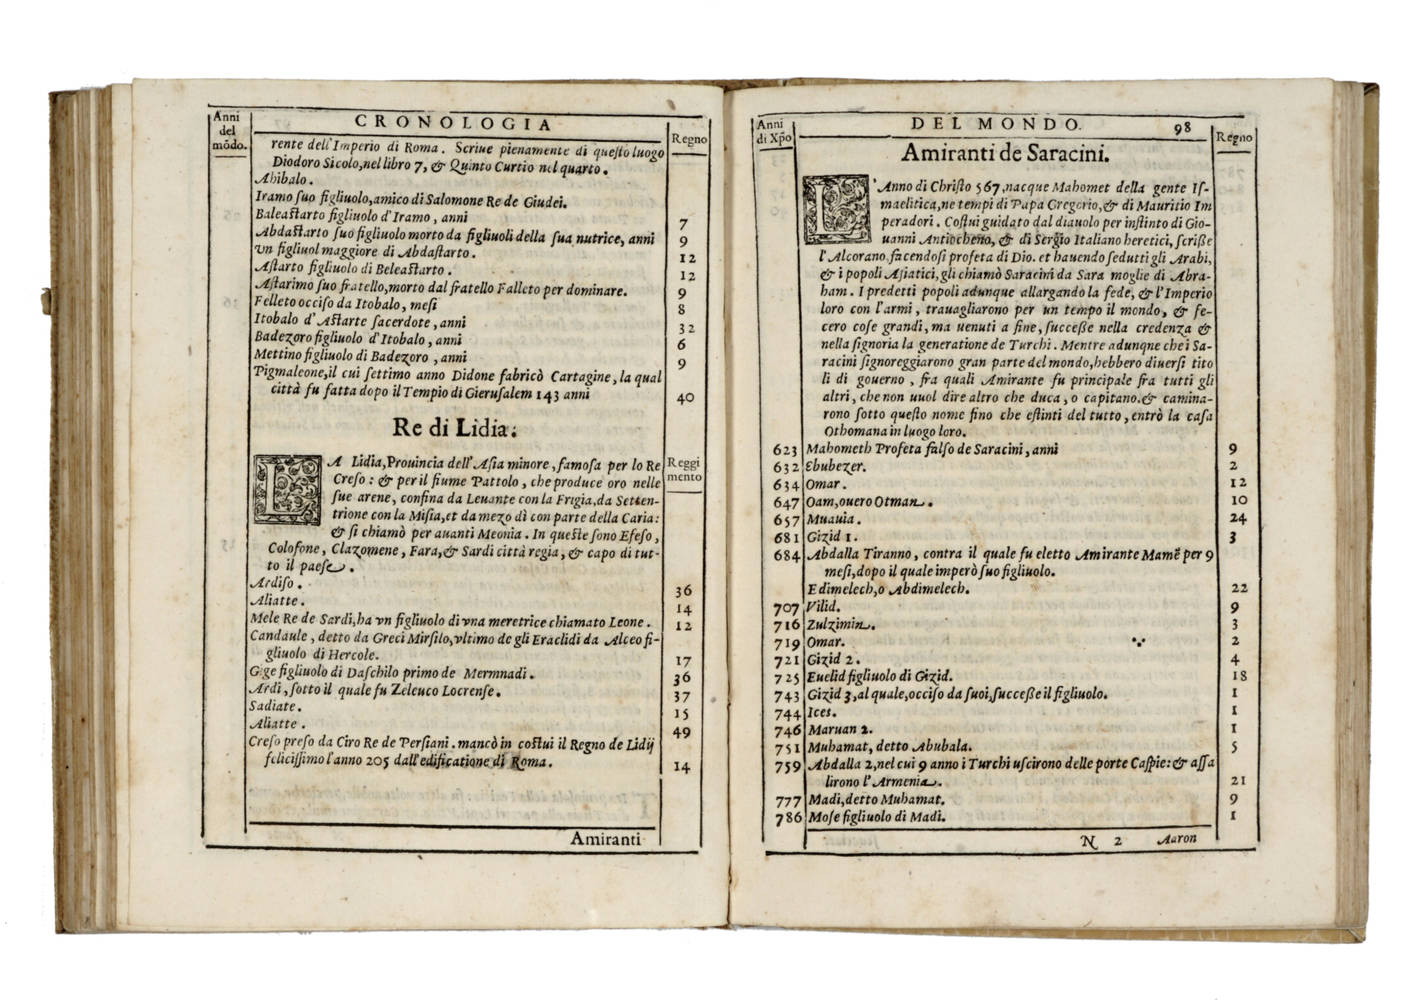 Anni
del
mõdo.
CRONOLOGIA
Regno
rente dell'Imperio di Roma. Scriue pienamente di questo luogo
Diodoro Sicolo, nel libro 7, & Quinto Curtio nel quarto.
Abibalo.
Iramo suo figliuolo, amico di Salomone Re de Giudei.
Baleastarto figliuolo d'Iramo, anni 7
Abdastarto suo figliuolo morto da figliuoli della sua nutrice, anni 9
Vn figliuol maggiore di Abdastarto. 12
Astarto figliuolo di Beleastarto. 12
Astarimo suo fratello, morto dal fratello Falleto per dominare. 9
Felleto occiso da Itobalo, mesi 8
Itobalo d'Astarte sacerdote, anni 32
Badezoro figliuolo d'Itobalo, anni 6
Mettino figliuolo di Badezoro, anni 9
Pigmaleone, il cui settimo anno Didone fabricò Cartagine, la qual
città fu fatta dopo il Tempio di Gierusalem 143 anni 40
Re di Lidia.
Reggi
mento
LA Lidia, Prouincia dell'Asia minore, famosa per lo Re
Creso: & per il fiume Pattolo, che produce oro nelle
sue arene, confina da Leuante con la Frigia, da Setten-
trione con la Misia, et da mezo dì con parte della Caria:
& si chiamò per auanti Meonia. In queste sono Efeso,
Colofone, Clazomene, Fara, & Sardi città regia, & capo di tut-
to il paese.
Ardiso. 36
Aliatte. 14
Mele Re de Sardi, ha vn figliuolo di vna meretrice chiamato Leone. 12
Candaule, detto da Greci Mirsilo, vltimo de gli Eraclidi da Alceo fi-
gliuolo di Hercole. 17
Gige figliuolo di Daschilo primo de Mermnadi. 36
Ardi, sotto il quale fu Zeleuco Locrense. 37
Sadiate. 15
Aliatte. 49
Creso preso da Ciro Re de Persiani. mancò in costui il Regno de Lidij
felicissimo l'anno 205 dall'edificatione di Roma. 14
Amiranti
Anni
di Xp̃o
DEL MONDO. 98
Regno
Amiranti de Saracini.
L'Anno di Christo 567, nacque Mahomet della gente Is-
maelitica, ne tempi di Papa Gregorio, & di Mauritio Im
peradori. Costui guidato dal diauolo per instinto di Gio-
uanni Antiocheno, & di Sergio Italiano heretici, scrisse
l'Alcorano, facendosi profeta di Dio. et hauendo sedutti gli Arabi,
& i popoli Asiatici, gli chiamò Saracini da Sara moglie di Abra-
ham. I predetti popoli adunque allargando la fede, & l'Imperio
loro con l'armi, trauagliarono per un tempo il mondo, & fe-
cero cose grandi, ma uenuti a fine, successe nella credenza &
nella signoria la generatione de Turchi. Mentre adunque che i Sa-
racini signoreggiarono gran parte del mondo, hebbero diuersi tito
li di gouerno, fra quali Amirante fu principale fra tutti gli
altri, che non uuol dire altro che duca, o capitano. & camina-
rono sotto questo nome fino che estinti del tutto, entrò la casa
Othomana in luogo loro.
623 Mahometh Profeta falso de Saracini, anni 9
632 Ebubezer. 2
634 Omar. 12
647 Oam, ouero Otman. 10
657 Muauia. 24
681 Gizid 1. 3
684 Abdalla Tiranno, contra il quale fu eletto Amirante Mamẽ per 9
mesi, dopo il quale imperò suo figliuolo.
Edimelech, o Abdimelech. 22
707 Vilid. 9
716 Zulzimin. 3
719 Omar. 2
721 Gizid 2. 4
725 Euelid figliuolo di Gizid. 18
743 Gizid 3, al quale, occiso da suoi, successe il figliuolo. 1
744 Ices. 1
746 Maruan 2. 1
751 Muhamat, detto Abubala. 5
759 Abdalla 2, nel cui 9 anno i Turchi uscirono delle porte Caspie: & assa
lirono l'Armenia. 21
777 Madi, detto Muhamat. 9
786 Mose figliuolo di Madi. 1
N 2 Aaron